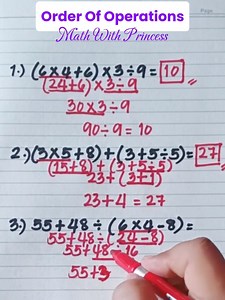 Order Of Operations
Math With Princess
1.) (6×4+6)×3÷9=10
(24+6)×3÷9
30×3÷9
90÷9=10
2.) (3×5+8)+(3+5÷5)=27
(15+8)+(3+5÷5)
23+(3+1)
23+4=27
3.) 55+48÷(6×4-8)=
55+48÷(24-8)
55+48÷16
55+3